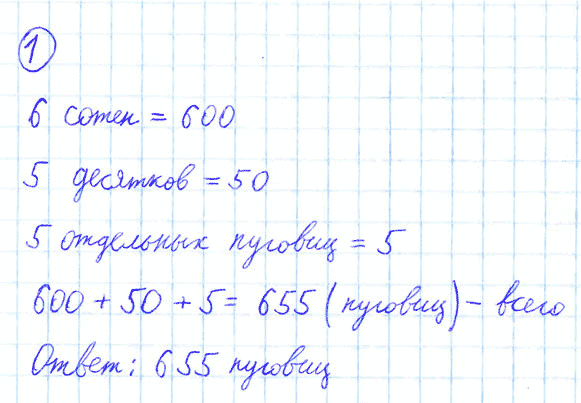 1
6 сотен = 600
5 десятков = 50
5 отдельных пуговиц = 5
600 + 50 + 5 = 655 (пуговиц) - всего
Ответ: 655 пуговиц